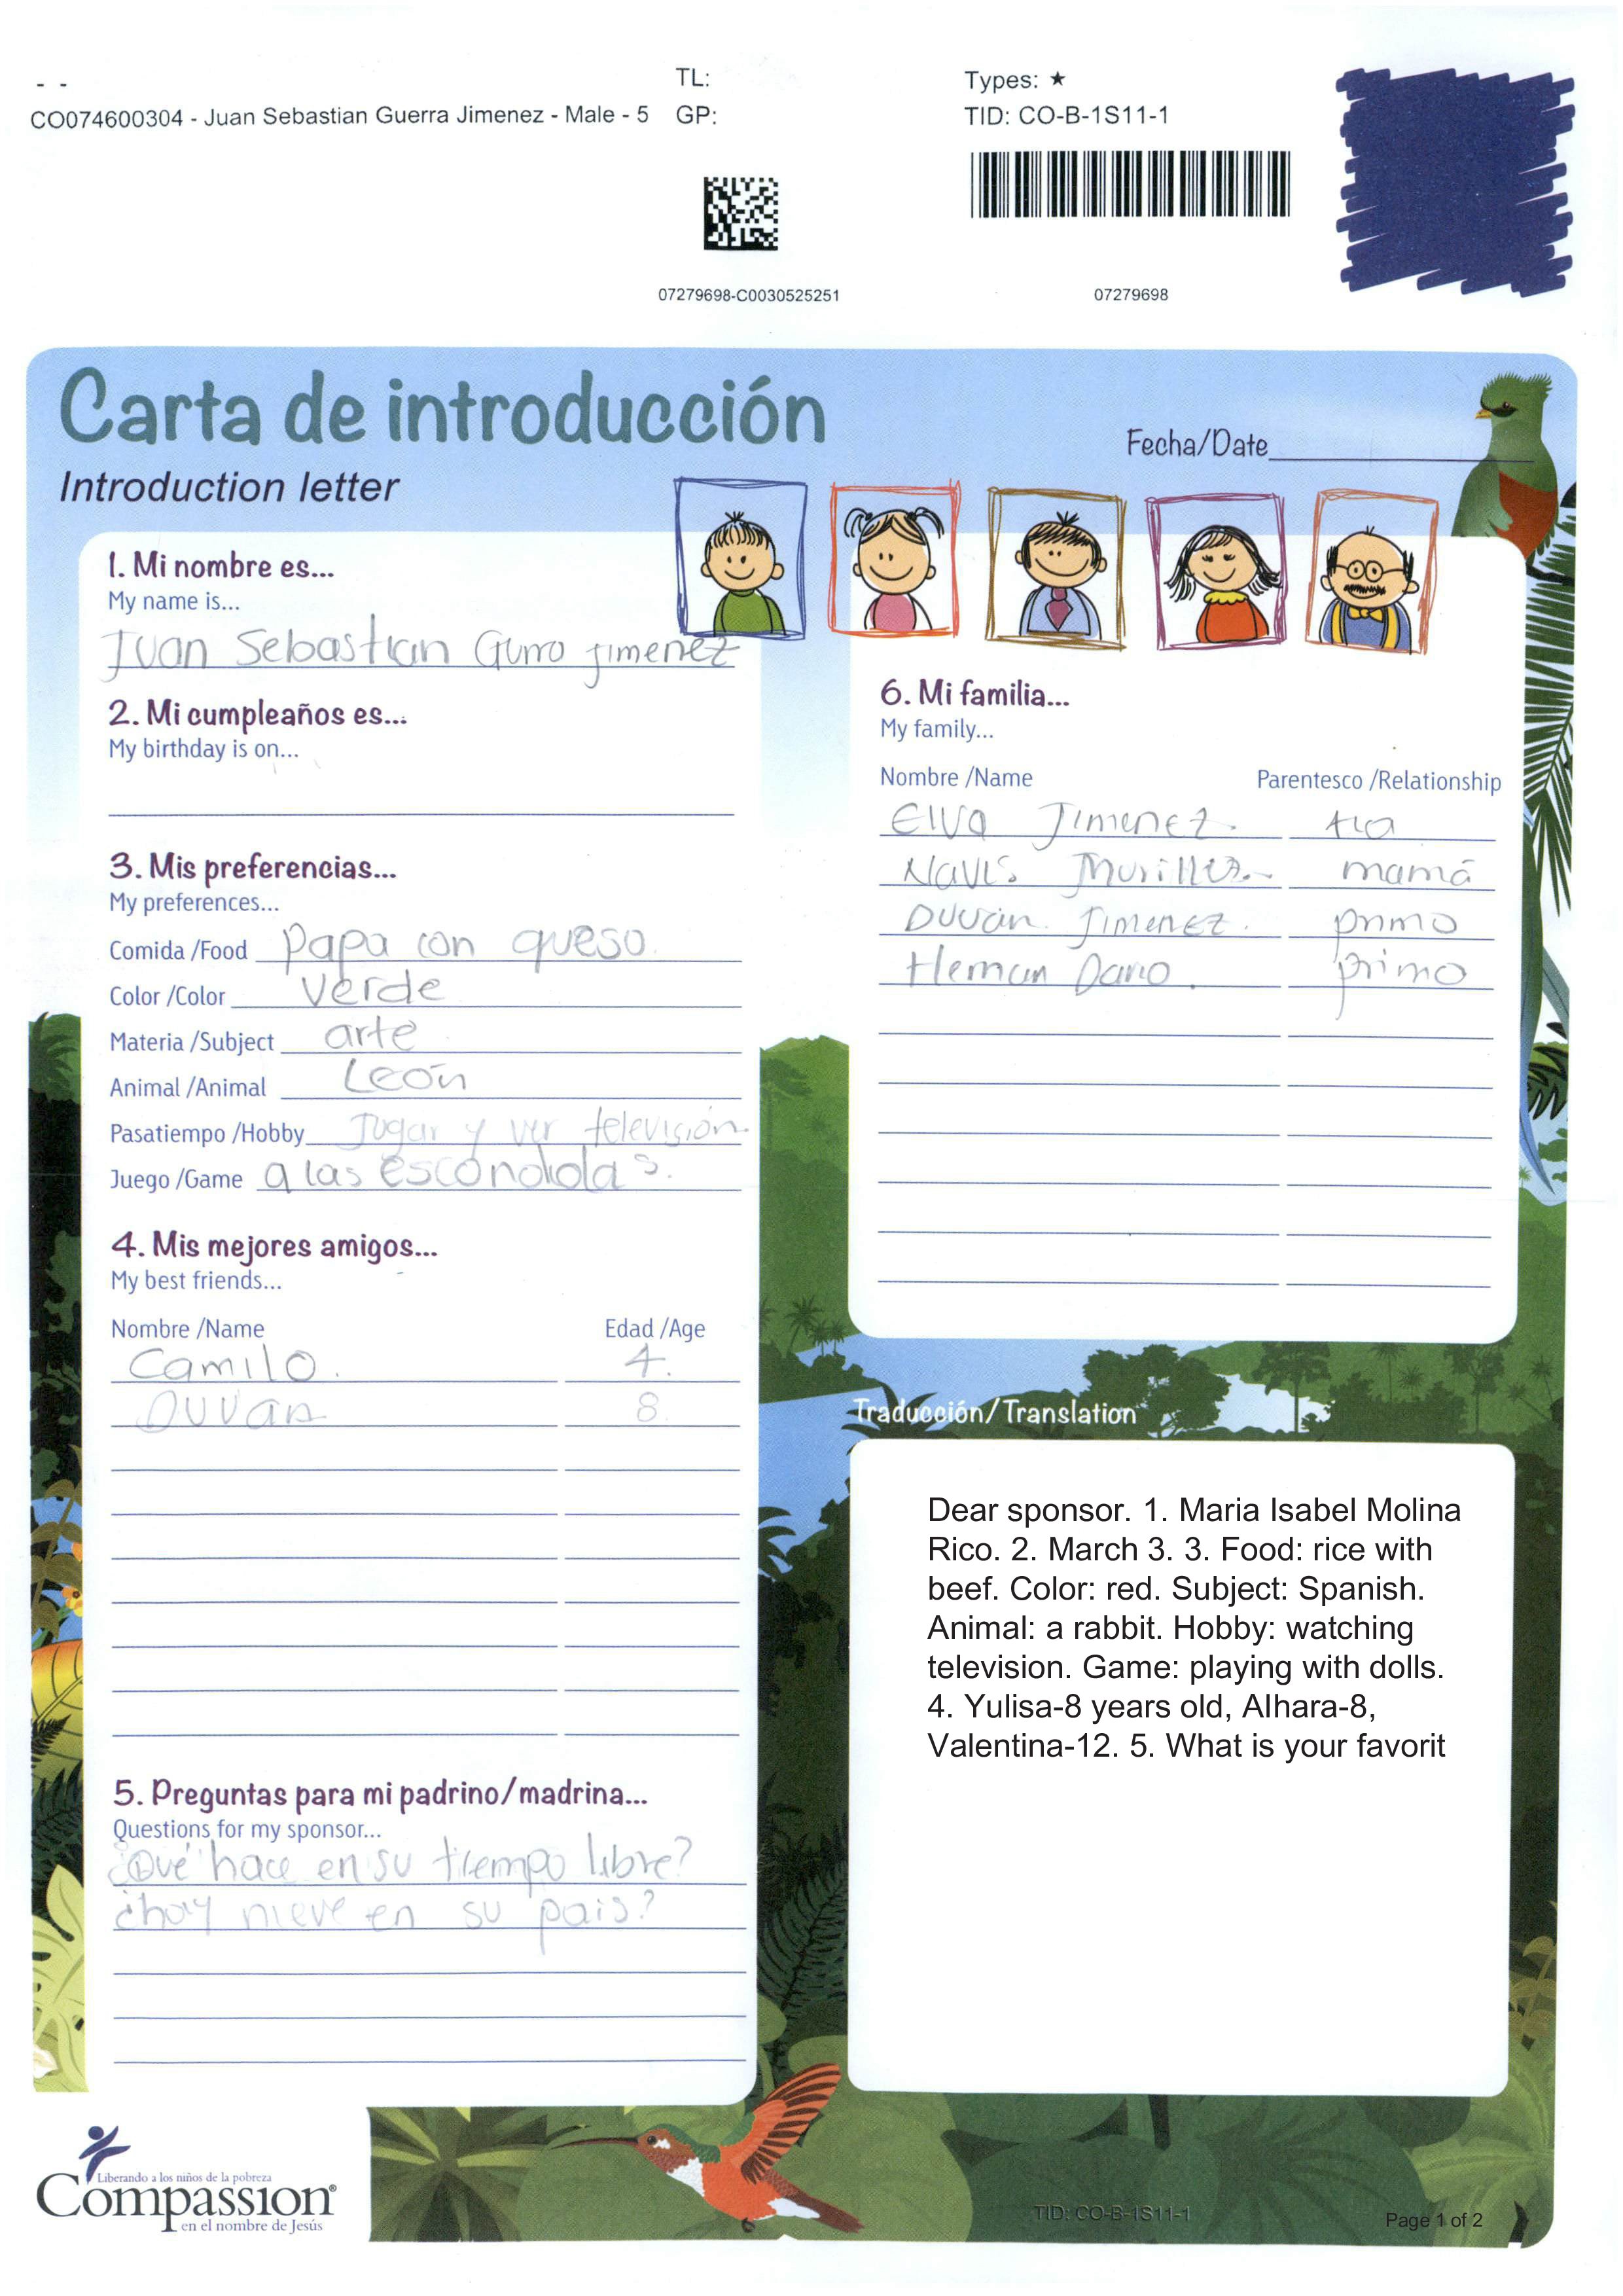 - -
CO074600304 - Juan Sebastian Guerra Jimenez - Male - 5
TL:
GP:
Types: ★
TID: CO-B-1S11-1
07279698-C0030525251
07279698
Carta de introducción
Introduction letter
Fecha/Date
1. Mi nombre es...
My name is...
Juan Sebastian Gurro jimenez
2. Mi cumpleaños es...
My birthday is on...
3. Mis preferencias...
My preferences...
Comida /Food Papa con queso.
Color /Color verde
Materia /Subject arte
Animal /Animal León
Pasatiempo /Hobby Jugar y ver televisión.
Juego /Game a las escondidas.
4. Mis mejores amigos...
My best friends...
Nombre /Name Edad /Age
Camilo. 4.
Duvan 8.
5. Preguntas para mi padrino/madrina...
Questions for my sponsor...
¿Qué hace en su tiempo libre?
¿hay nieve en su pais?
6. Mi familia...
My family...
Nombre /Name Parentesco /Relationship
Elva Jimenez. tia
mamá
Duvan. Jimenez. primo
Hernan Dario. primo
Traducción/Translation
Dear sponsor. 1. Maria Isabel Molina
Rico. 2. March 3. 3. Food: rice with
beef. Color: red. Subject: Spanish.
Animal: a rabbit. Hobby: watching
television. Game: playing with dolls.
4. Yulisa-8 years old, Alhara-8,
Valentina-12. 5. What is your favorit
Liberando a los niños de la pobreza
Compassion®
en el nombre de Jesús
TID: CO-B-1S11-1
Page 1 of 2